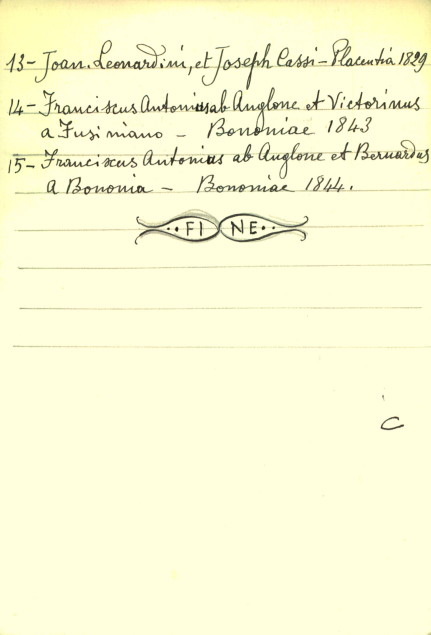 13 - Joan. Leonardini, et Joseph Cassi - Placentia 1829
14 - Franciscus Antonius ab Anglone et Victorinus
a Fusiniano - Bononiae 1843
15 - Franciscus Antonius ab Anglone et Bernardus
a Bononia - Bononiae 1844.
FINE
C